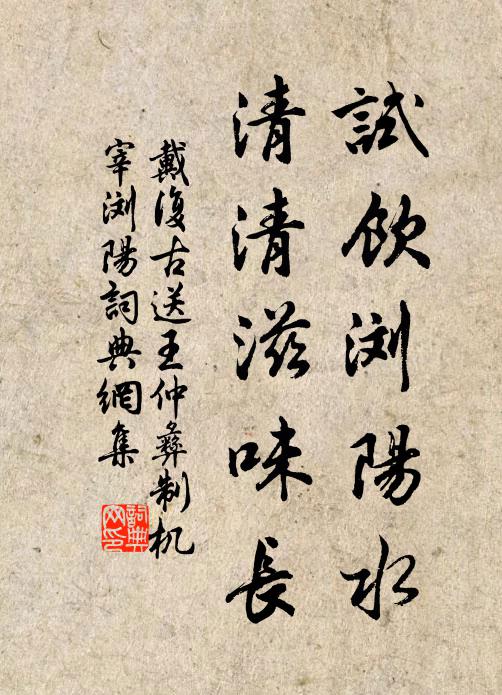 試飲浏陽水
清清滋味長
戴復古送王仲彝制机
宰浏陽詞典網集
詞典网印